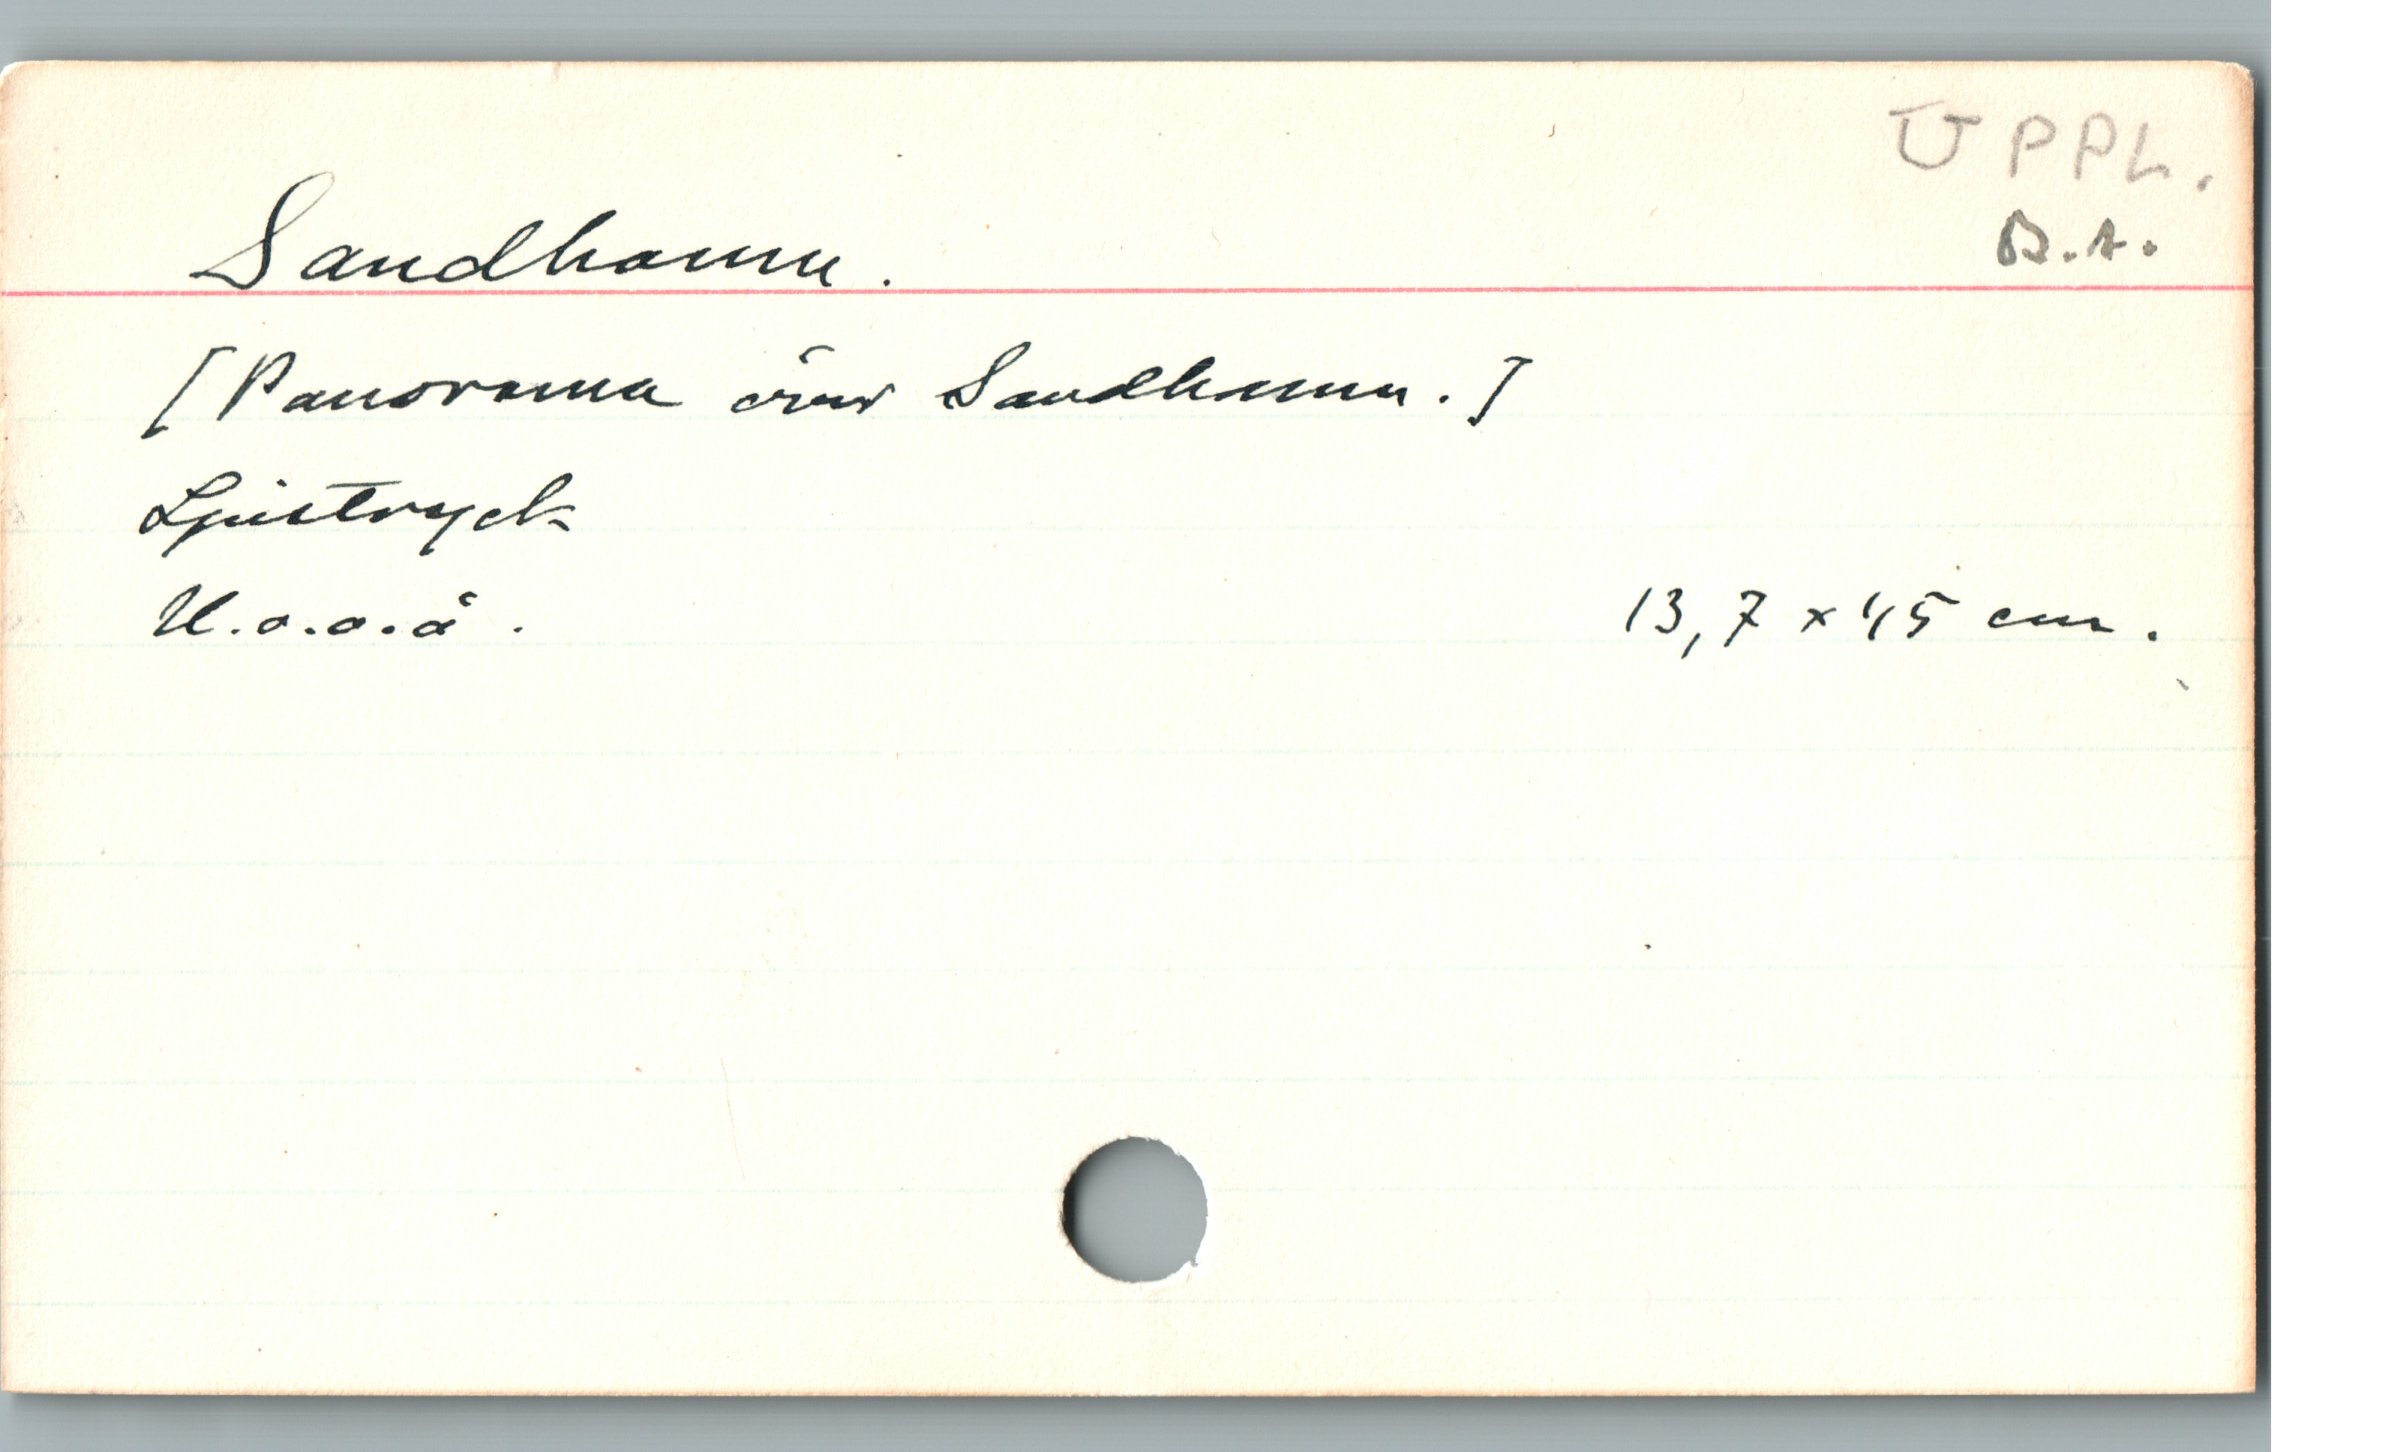 UPPL.
B.A.
Sandhamn.
[Panorama över Sandhamn.]
Ljustryck
U.o.o.å. 13,7 x 45 cm.